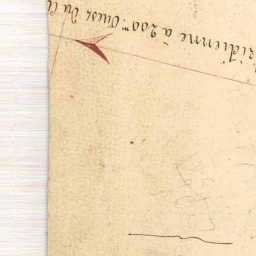 ridienne à 200ᵐ. Ouest du C